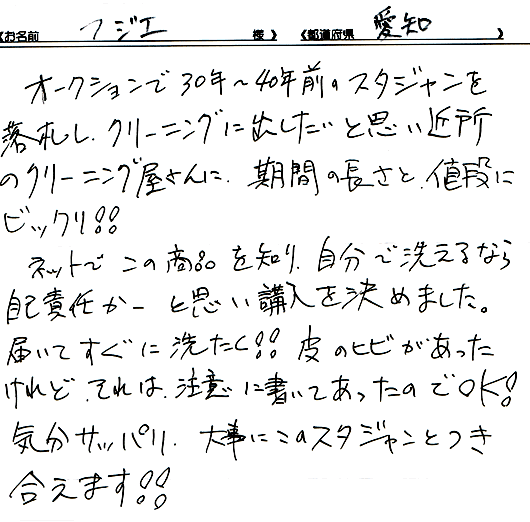 《お名前 フジエ 様》《都道府県 愛知 》
オークションで30年〜40年前のスタジャンを
落札し、クリーニングに出したいと思い近所
のクリーニング屋さんに、期間の長さと、値段に
ビックリ!!
ネットでこの商品を知り、自分で洗えるなら
自己責任かーと思い購入を決めました。
届いてすぐに洗たく!! 皮のヒビがあった
けれど、それは、注意に書いてあったのでOK!
気分サッパリ、大事にこのスタジャンとつき
合えます!!